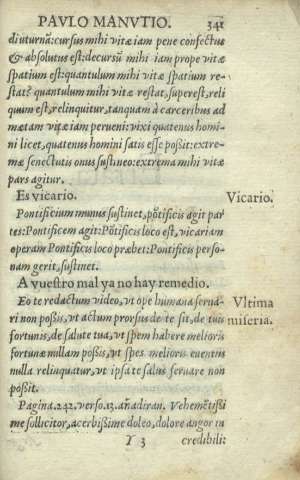 PAVLO MANVTIO. 341
diuturnã: cursus mihi vitæ iam pene confectus
& absolutus est: decursũ mihi iam prope vitæ
spatium est: quantulum mihi vitæ spatium re-
stat? quantulum mihi vitæ restat, superest, reli
quum est, relinquitur, tanquam à carceribus ad
metam vitæ iam perueni: vixi quatenus homi-
ni licet, quatenus homini satis esse poßit: extre-
mæ senectutis onus sustineo: extrema mihi vitæ
pars agitur.
Es vicario. Vicario.
Pontificium munus sustinet, põtificis agit par
tes: Pontificem agit: Põtificis loco est, vicariam
operam Pontificis loco præbet: Pontificis perso-
nam gerit, sustinet.
A vuestro mal ya no hay remedio.
Eo te redactum video, vt ope humana serua- Vltima
ri non poßis, vt actum prorsus de te sit, de tuis miseria.
fortunis, de salute tua, vt spem habere melioris
fortunæ nullam poßis, vt spes melioris euentus
nulla relinquatur, vt ipsa te salus seruare non
poßit.
Pagina. 242. verso. 13. añadiran. Vehemẽtißi
me sollicitor, acerbißime doleo, dolore angor in
Y 3 credibili: